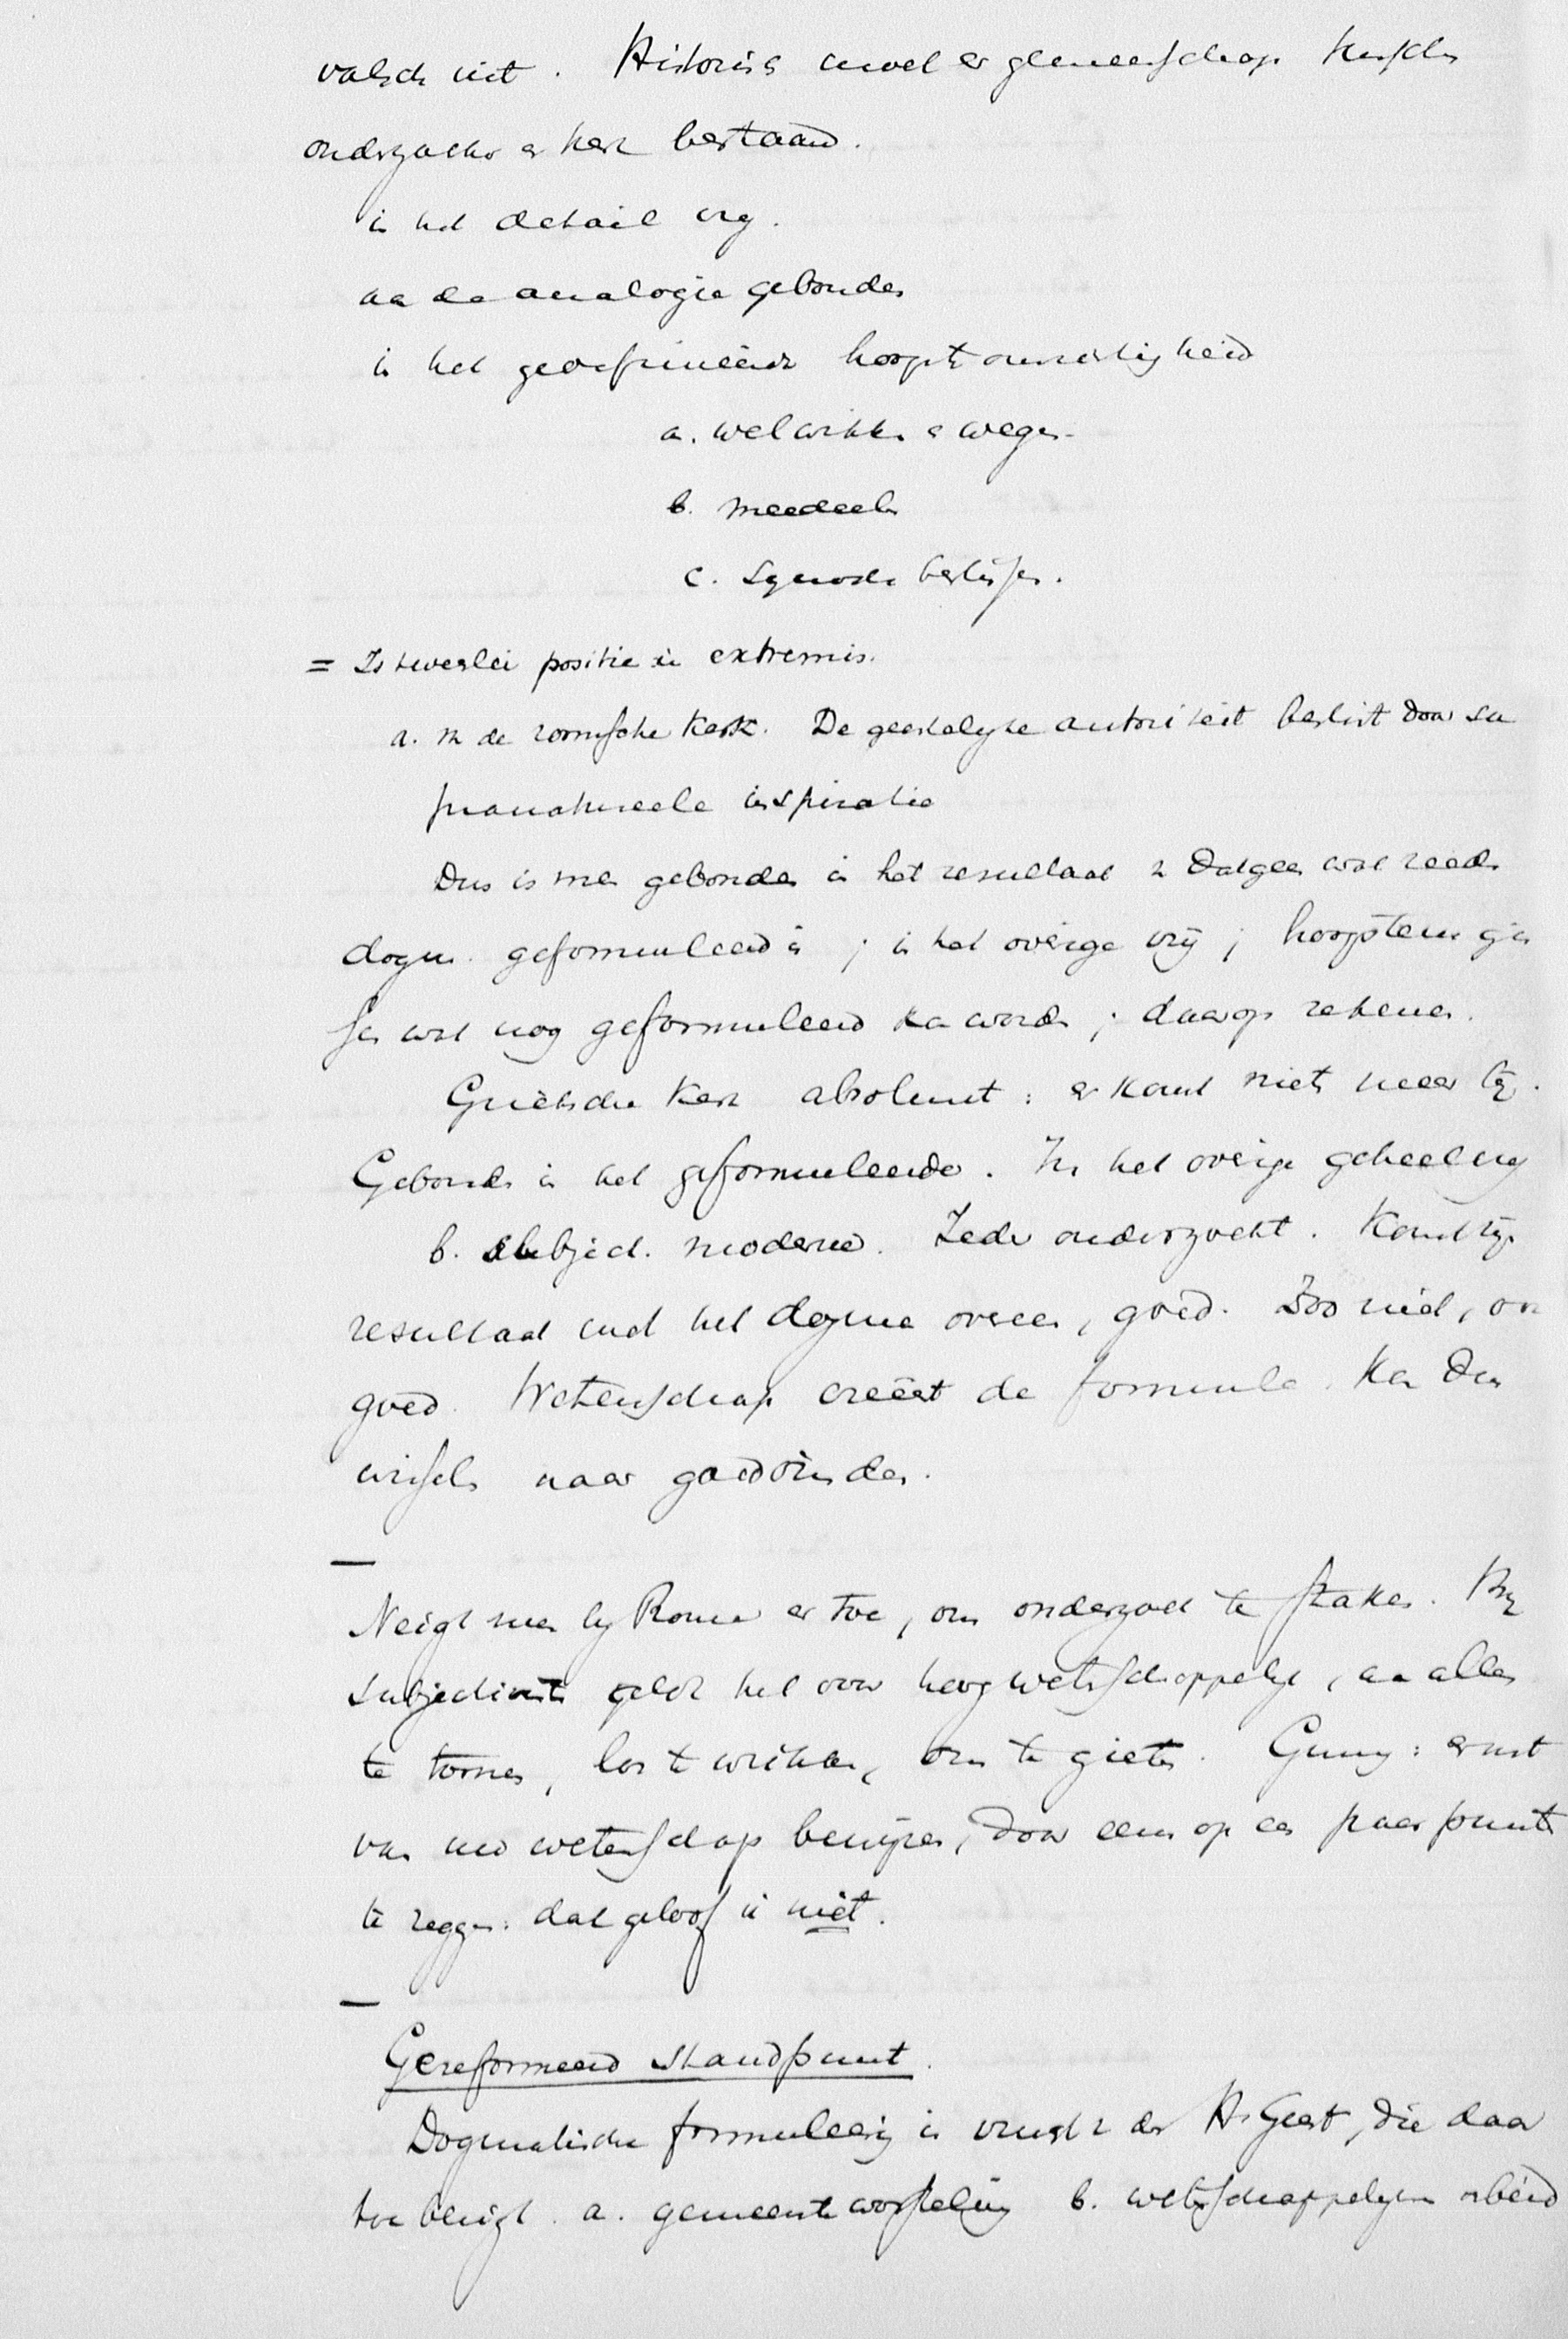 valsch uit. Historisch moet er gemeenschap tusschen
onderzoeker en kerk bestaan.
in het detail vrij.
aan de analogie gebonden
in het gedefinieerde hoogst omzichtigheid
a. wel wikken en wegen.
b. meedeelen
c. Synode beslissen.
= Is tweeërlei positie in extremis.
a. In de roomsche Kerk. De geestelijke autoriteit beslist door su
pranatureele inspiratie
Dus is men gebonden in het resultaat v. datgeen wat reeds
dogm. geformuleerd is; in het overige vrij; hoogstens
wat nog geformuleerd kan worden; daarop rekenen.
Grieksche Kerk absoluut: er komt niets meer bij.
Gebonden in het geformuleerde. In het overige geheel vrij
b. subject. moderne. Ieder onderzoekt. Komt zijn
resultaat met het dogma overeen, goed. Zoo niet, ook
goed. Wetenschap creëert de formule. Kan dus
wisselen naar goedvinden.
Neigt men bij Rome er toe, om onderzoek te staken. Bij
subjectivisten geldt het voor hoogwetenschappelijk, aan alles
te tornen, los te wrikken, om te gieten. Gunning: ernst
van uw wetenschap bewijzen, door eens op een paar punten
te zeggen: dat geloof ik niet.
Gereformeerd standpunt.
Dogmatische formuleering is vrucht v. den H. Geest, die daar
toe bezigt. a. gemeente worsteling b. wetenschappelijken arbeid